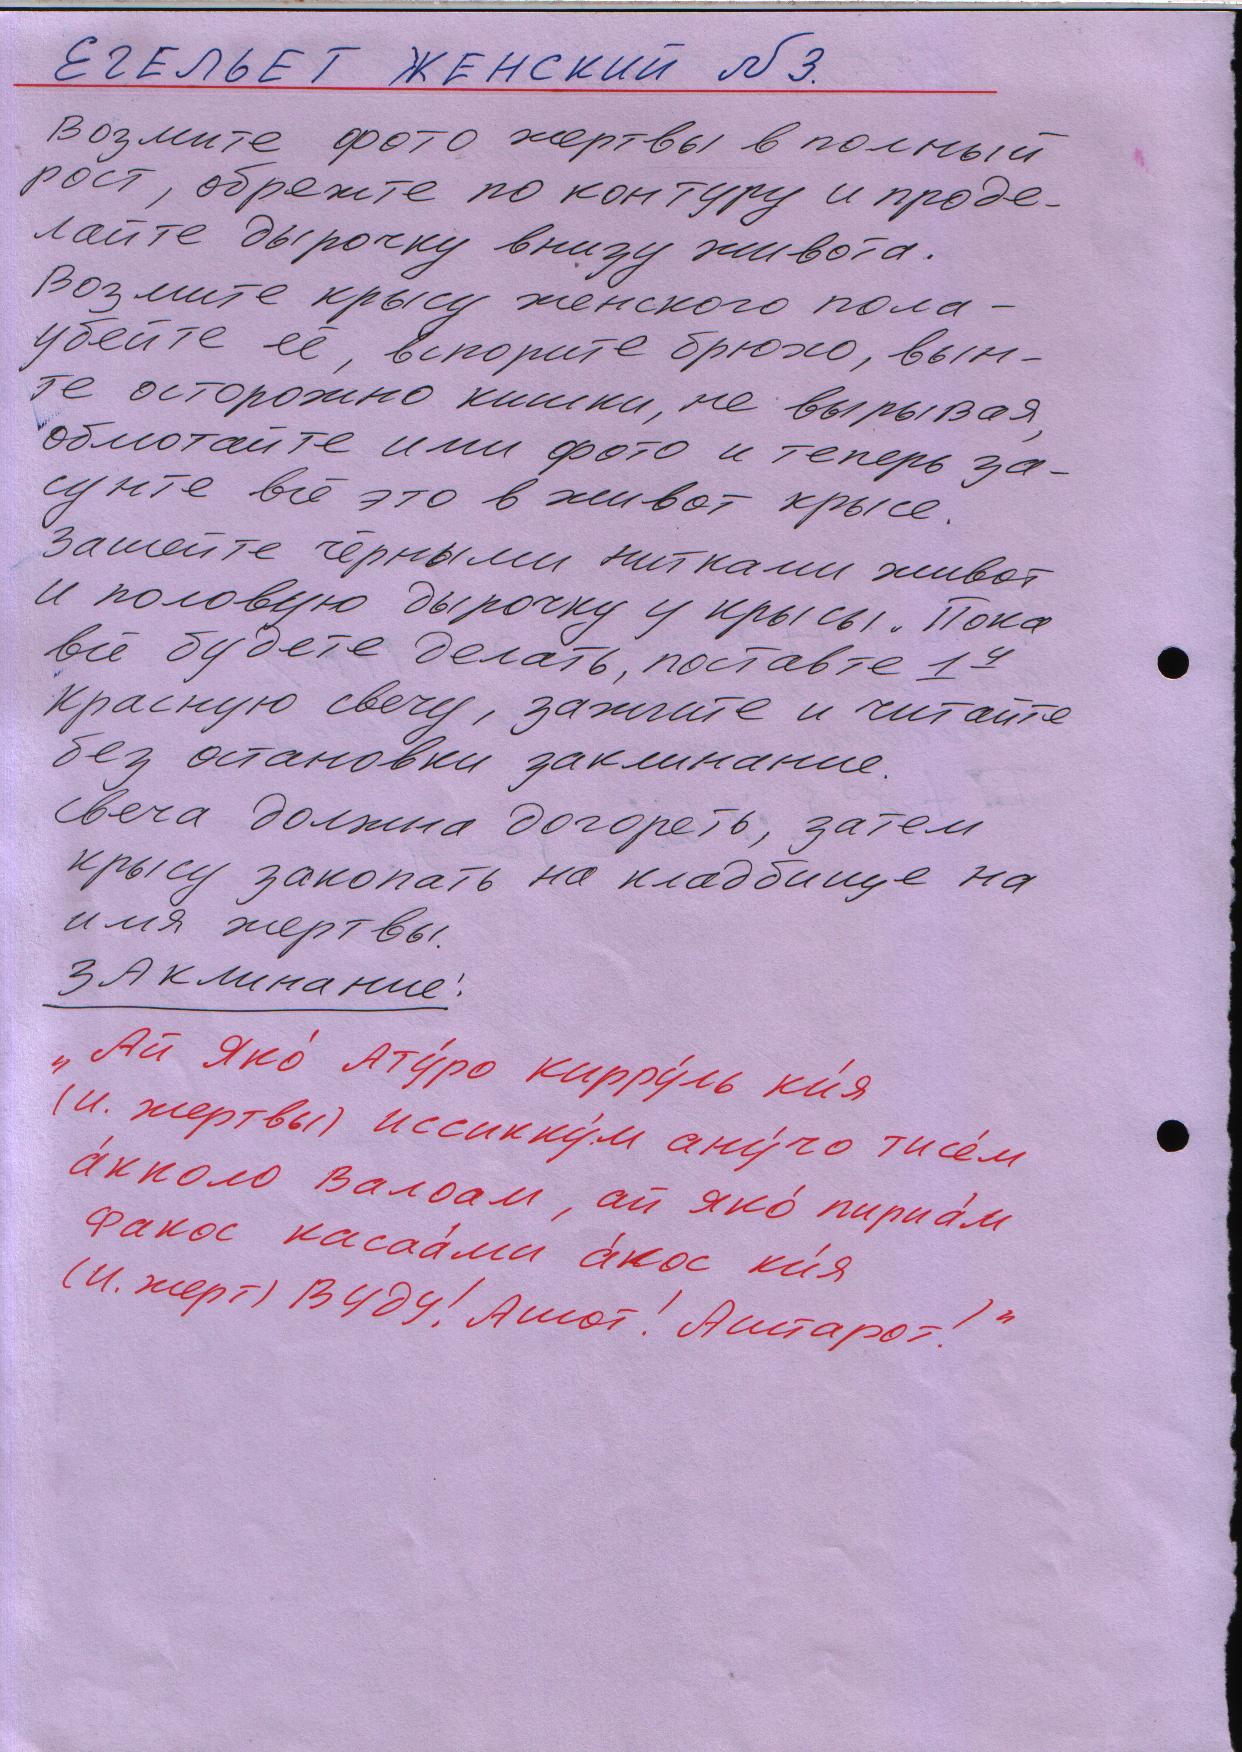 ЕГЕЛЬЕТ ЖЕНСКИЙ №3.
Возмите фото жертвы в полный
рост, обрежте по контуру и проде-
лайте дырочку внизу живота.
Возмите крысу женского пола -
убейте её, вспорите брюхо, вын-
те осторожно кишки, не вырывая,
обмотайте ими фото и теперь за-
сунте всё это в живот крысе.
Зашейте чёрными нитками живот
и половую дырочку у крысы. Пока
всё будете делать, поставте 1у
красную свечу, зажгите и читайте
без остановки заклинание.
Свеча должна догореть, затем
крысу закопать на кладбище на
имя жертвы.
ЗАклинание:
„Ай Яко́ Ату́ро Кирру́ль ки́я
(и. жертвы) иссикку́м ану́чо тисе́м
а́кколо Валоам, ай яко́ пириа́м
Факос касаа́ми а́кос ки́я
(и. жерт) Вуду! Ашот! Аштарот!"